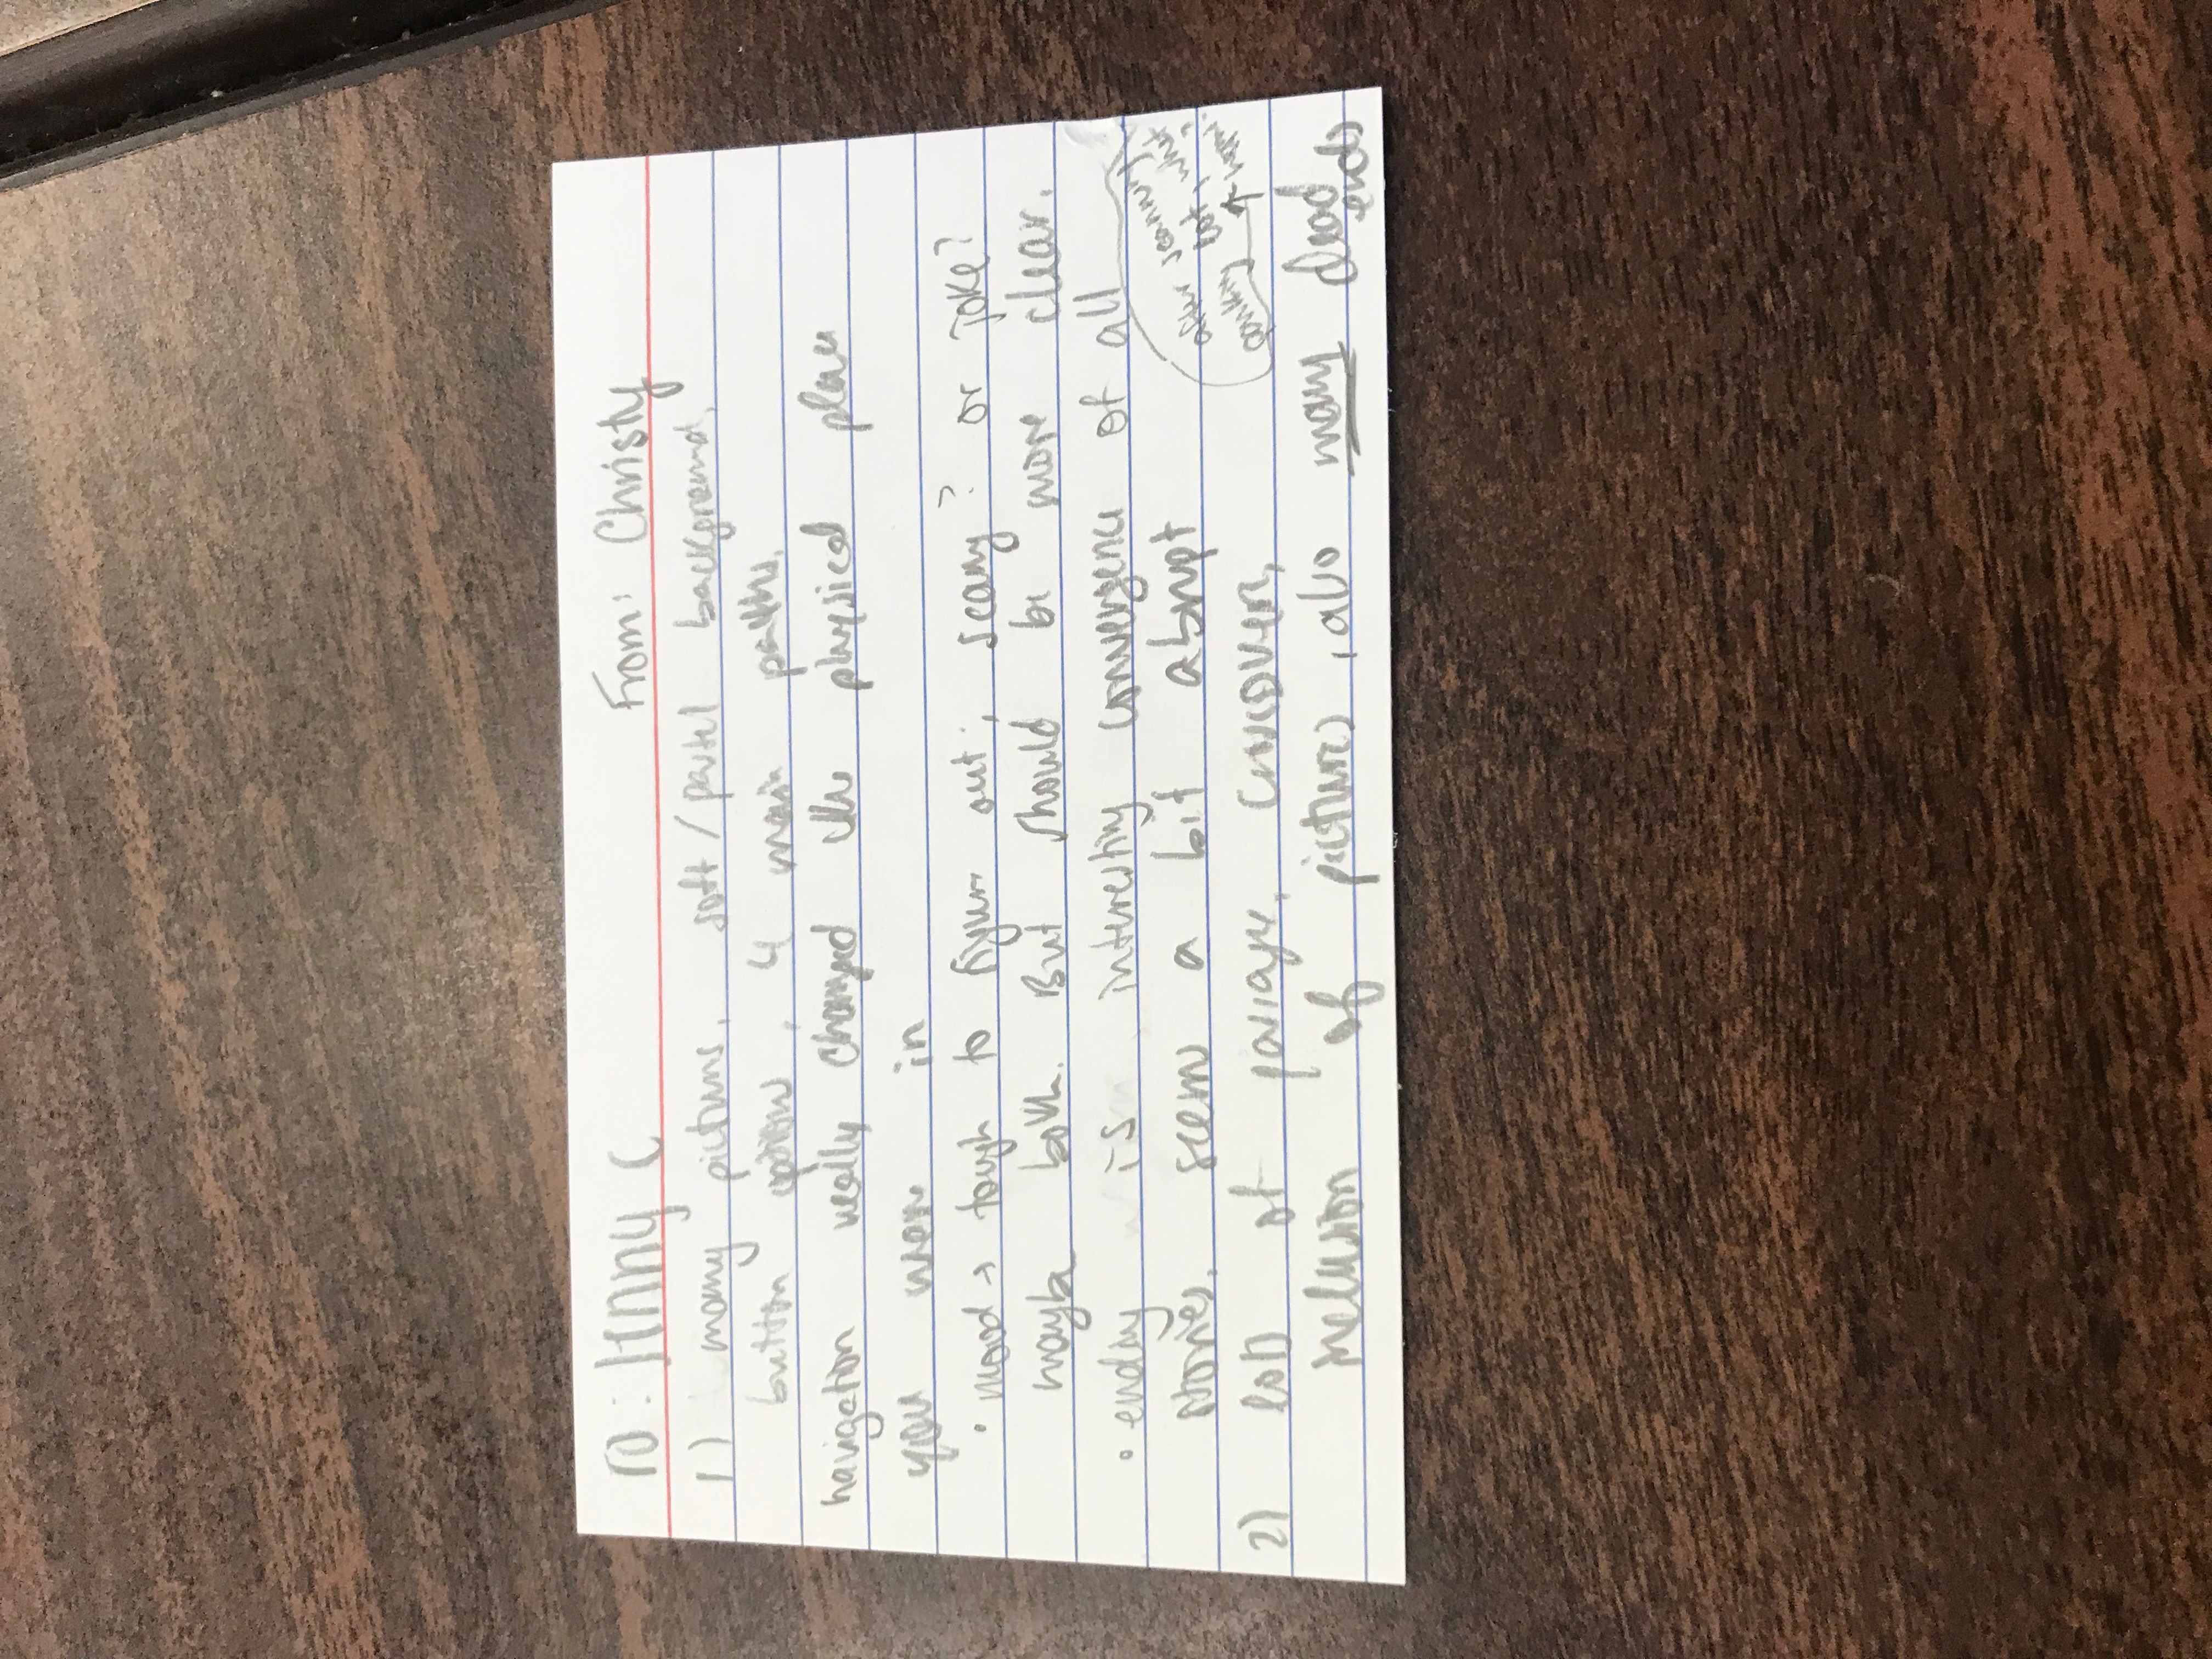 TO: Jenny C
From: Christy
1) many pictures, soft/pastel background,
button options, 4 main paths.
navigation really changed the physical place
you were in
• mood → tough to figure out; scary? or joke?
maybe both. But should be more clear.
• ending is interesting convergence of all
stories. seems a bit abrupt
after scanning
parking lot, what
happens?
2) lots of passages, crossovers,
inclusion of pictures, also many dead
ends